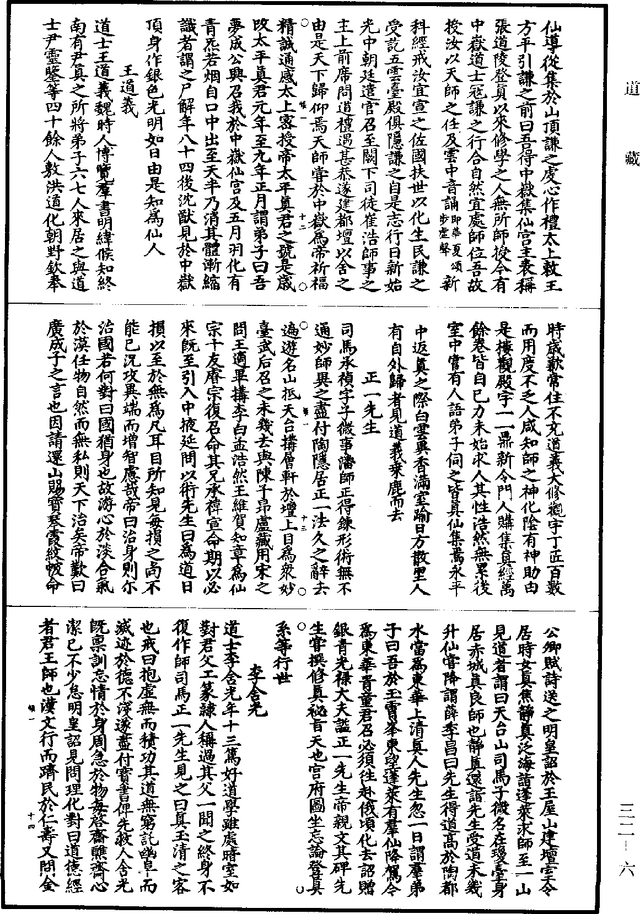 道藏
三二—六
仙導從集於山頂謙之虔心作禮太上敕王
方平引謙之前曰吾得中嶽集仙宮主表稱
張道陵登真以來修學之人無所師授今有
中嶽道士寇謙之行合自然宜處師位吾故
授汝以天師之任及雲中音誦即華夏頌步虛聲新
科經戒汝宜宣之佐國扶世以化生民謙之
受訖五雲臺殿俱隱謙之自是志行日新始
光中朝廷遣官召至闕下司徒崔浩師事之
主上前席問道禮遇甚恭遂建都壇以舍之
由是天下歸仰焉天師嘗於中嶽爲帝祈福
精誠通感太上密授帝太平真君之號是歲
改太平真君元年至九年正月謂弟子曰吾
夢成公興召我於中嶽仙宮及五月羽化有
青炁若烟自口中出至天半乃消其體漸縮
識者謂之尸解年八十四後沈猷見於中嶽
頂身作銀色光明如日由是知爲仙人
王道義
道士王道義魏時人博覽羣書明緯候知終
南有尹真之所將弟子六七人來居之與道
士尹靈鑒等四十餘人敷洪道化朝野欽奉
時歲歉常住不充道義大修觀宇丁匠百數
而用度不乏人咸知師之神化陰有神助由
是樓觀殿宇一一鼎新令門人購集真經萬
餘卷皆自己力未始求人其性浩然無累後
室中嘗有人語弟子伺之皆真仙集焉永平
中返真之際白雲異香滿室踰日方散里人
有自外歸者見道義乘鹿而去
正一先生
司馬承禎字子微事潘師正得鍊形術無不
通妙師異之盡付陶隱居正一法久之辭去
遍遊名山抵天台搆層軒於壇上目爲衆妙
臺武后召之未幾去與陳子昂盧藏用宋之
問王適畢搆李白孟浩然王維賀知章爲仙
宗十友睿宗復召命其兄承禕宣命期以必
來旣至引入中掖延問以術先生曰爲道日
損以至於無爲凡耳目所知見每損之尚不
能已況攻異端而增智慮哉帝曰治身則尔
治國若何對曰國猶身也故游心於淡合氣
於漠任物自然而無私則天下治矣帝歎曰
廣成子之言也因請還山賜寶琴霞紋帔命
公卿賦詩送之明皇詔於王屋山建壇室令
居時女真焦靜真泛海詣蓬萊求師至一山
見道者謂曰天台山司馬子微名在瓊臺身
居赤城真良師也靜真還詣先生受道未幾
升仙嘗降謂薛季昌曰先生得道高於陶都
水當爲東華上清真人先生忽一日謂羣弟
子曰吾於玉霄峯東望蓬萊有羣仙降駕今
爲東華青童君召必須往赴俄頃化去詔贈
銀青光祿大夫謚正一先生帝親文其碑先
生嘗撰修真祕旨天地宮府圖坐忘論登真
系等行世
李含光
道士李含光年十三篤好道學雖處暗室如
對君父工篆隸人稱過其父一聞之終身不
復作師司馬正一先生見之曰真玉清之客
也戒曰抱虛無而積功其道無窮託幽阜而
滅迹於德不深遂盡付雲書俾先救人含光
旣稟訓忘情於身周急於物每啓齋醮齊心
潔己不少怠明皇詔見問理化對曰道德經
者君王師也漢文行而躋民於仁壽又問金